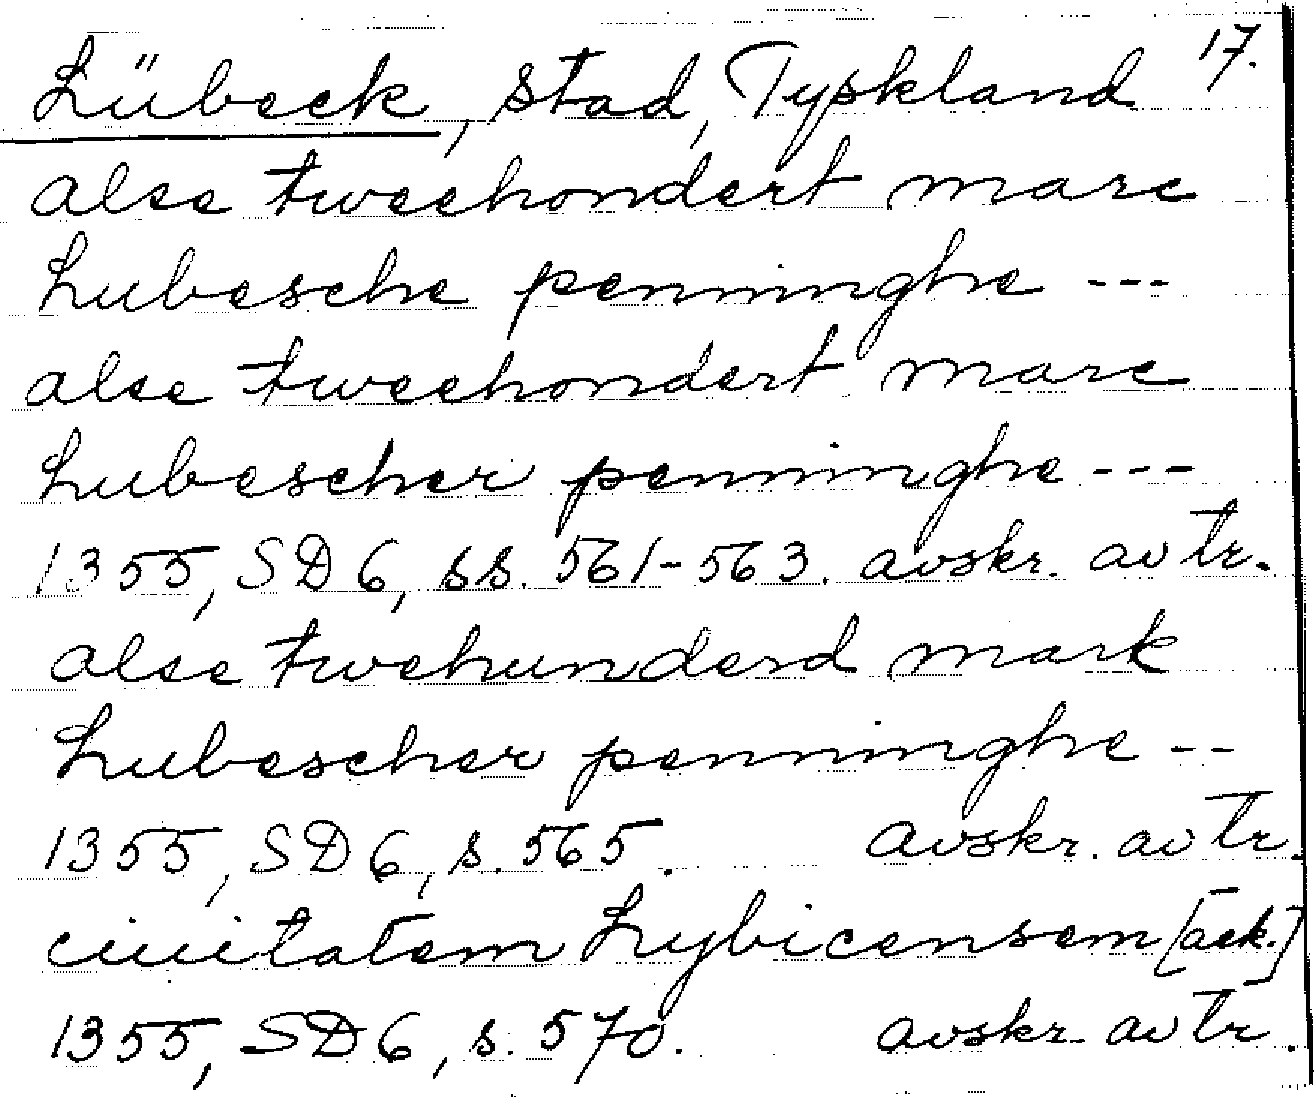 17.
Lübeck, stad, Tyskland
alse tweehondert marc
Lubesche penninghe ---
alse tweehondert marc
Lubescher penninghe ---
1355, SD 6, ss. 561-563. avskr. av tr.
alse twehunderd mark
Lubescher penninghe --
1355, SD 6, s. 565. avskr. av tr.
ciuitatem Lybicensem [ack.]
1355, SD 6, s. 570. avskr. av tr.